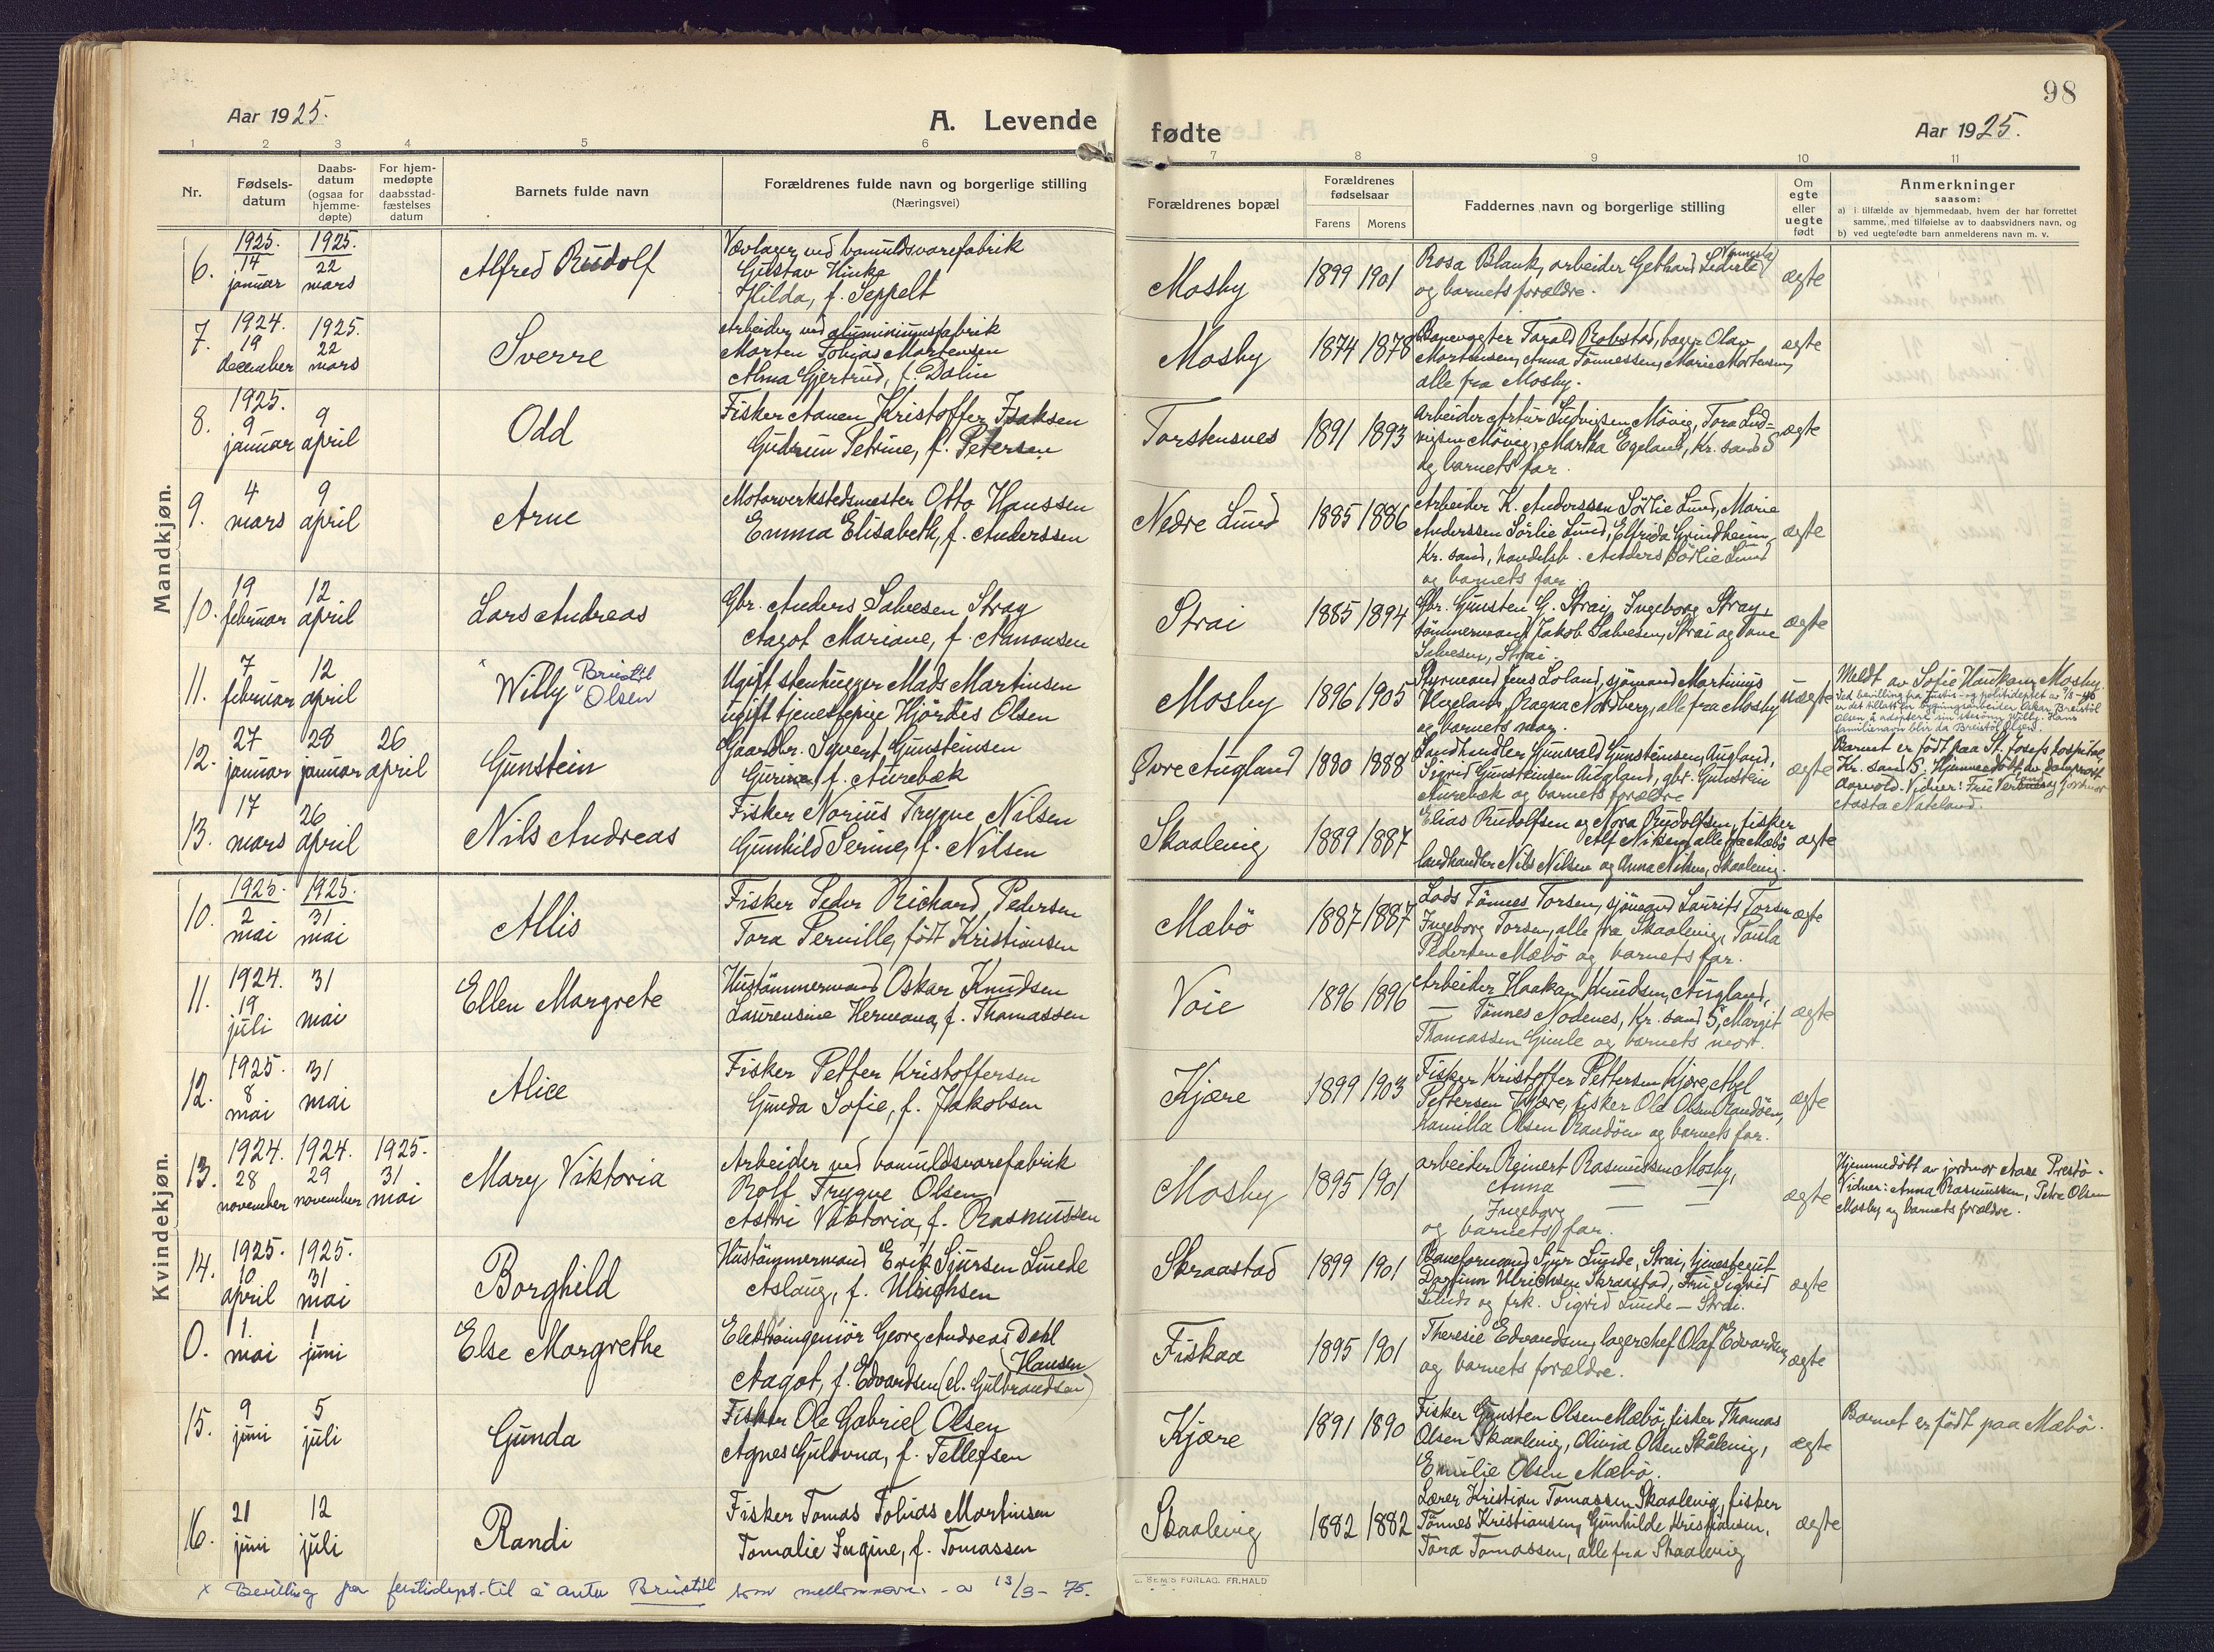 98
Aar 1925.
A. Levende
fødte
Aar 1925.
1 2 3 4 5 6 7 8 9 10 11
Nr.
Fødsels-
datum
Daabs-
datum
(ogsaa for
hjemme-
døpte)
For hjem-
medøpte
daabsstad-
fæstelses
datum
Barnets fulde navn
Forældrenes fulde navn og borgerlige stilling
(Næringsvei)
Forældrenes bopæl
Forældrenes
fødselsaar
Farens Morens
Faddernes navn og borgerlige stilling
Om
egte
eller
uegte
født
Anmerkninger
saasom:
a) i tilfælde av hjemmedaab, hvem der har forrettet
samme, med tilføielse av to daabsvidners navn, og
b) ved uegtefødte barn anmelderens navn m. v.
Mandkjøn.
6.
1925.
14
januar
1925.
22
mars
Alfred Rudolf
Vævlager ved bomuldsvarefabrik
Gustav Hinke
Hilda, f. Seppelt
Mosby
1899 1901
Rosa Blank, arbeider Gebhard Lederle
og barnets forældre.
ægte
7.
1924.
19
december
1925.
22
mars
Sverre
Arbeider ved aluminiumsfabrik
Morten Tobias Mortensen
Alma Gjertrud, f. Dalin
Mosby
1874 1878
Banevogter Tarald Robstad, bager Olav
Mortensen, Anna Tønnessen, Marie Mortensen,
alle fra Mosby.
ægte
8.
1925.
9
januar
9
april
Odd
Fisker Aanen Kristoffer Isaksen
Gudrun Petrine, f. Petersen
Torstensnes
1891 1893
Arbeider Artur Ludvigsen Møvig, Tora Lud=
vigsen Møvig, Martha Egeland, Kr. sand S
og barnets far.
ægte
9.
4
mars
9
april
Arne
Motorverkstedsmester Otto Hanssen
Emma Elisabeth, f. Anderssen
Nedre Lund
1885 1886
Arbeider K. Anderssen Sørlie Lund, Marie
Anderssen Sørlie Lund, Elfrida Grindheim
Kr. sand, handelsb. Anders Sørlie Lund
og barnets far
ægte
10.
19
februar
12
april
Lars Andreas
Gbr. Anders Salvesen Stray
Aagot Mariane, f. Aanonsen
Strai
1885 1894
Gbr. Gunsten G. Strai, Ingeborg Stray,
tømmermand Jakob Salvesen, Strai og Tone
Salvesen, Strai.
ægte
11.
7
februar
12
april
x
Willy Breistøl
Olsen
Ugift stenhugger Mads Martinsen
ugift tjenestepige Hjørdis Olsen
Mosby
1896 1905
Styrmand Jens Loland, sjømand Martinius
Hegeland, Ragna Nordberg, alle fra Mosby
og barnets mor.
uægte
Meldt av Sofie Haukom, Mosby.
Ved bevilling fra Justis- og politideptet av
er det tillatt for bygningsarbeider Oskar Breistøl
Olsen å adoptere sin stesønn Willy. Hans
familienavn blir da Breistøl Olsen.
12.
27
januar
28
januar
26
april
Gunstein
Gaardbr. Syvert Gunsteinsen
Gurine f. Aurebæk
Øvre Augland
1880 1888
Landhandler Gunvald Gunsteinsen, Augland,
Sigrid Gunsteinsen Augland, gbr. Gunstein
Aurebæk og barnets forældre
ægte
Barnet er født paa St. Josefs hospital,
Kr. sand S. Hjemmedøbt av domprost
Aarvold. Vidner: Frue jordmor
Aasta Nateland.
13.
17
mars
26
april
Nils Andreas
Fisker Norius Trygve Nilsen
Gunhild Serine, f. Nilsen
Skaalevig
1889 1887
Elias Rudolfsen og Nora Rudolfsen, fisker
Alf Nilsen, alle fra Mæbø
landhandler Nils Nilsen og Anna Nilsen, Skaalevig.
ægte
Kvindekjøn.
10.
1925.
2
mai
1925.
31
mai
Allis
Fisker Peder Richard Pedersen
Tora Pernille, født Kristiansen
Mæbø
1887 1887
Lods Tønnes Torsen, sjømand Laurits Torsen
Ingeborg Torsen, alle fra Skaalevig, Paula
Pedersen Mæbø og barnets far.
ægte
11.
1924.
19
juli
31
mai
Ellen Margrete
Hustømmermand Oskar Knudsen
Laurensine Hermana, f. Thomassen
Voie
1896 1896
Arbeider Haakon Knudsen, Augland,
— Tønnes Nodenes, Kr. sand S, Margit
Thomassen Gimle og barnets mor.
ægte
12.
1925.
8
mai
31
mai
Alice
Fisker Petter Kristoffersen
Gunda Sofie, f. Jakobsen
Kjære
1899 1903
Fisker Kristoffer Pettersen Kjære, Abel
Pettersen Kjære, fisker Ole Olsen Randøen,
Kamilla Olsen Randøen og barnets far.
ægte
13.
1924.
28
november
1924.
29
november
1925.
31
mai
Mary Viktoria
Arbeider ved bomuldsvarefabrik
Rolf Trygve Olsen
Astri Viktoria, f. Rasmussen
Mosby
1895 1901
arbeider Reinert Rasmussen Mosby,
Anna — —
Ingeborg — —
og barnets far.
ægte
Hjemmedøbt av jordmor Aase Prestø.
Vidner: Anna Rasmussen, Petra Olsen
Mosby og barnets forældre.
14.
1925.
10
april
1925.
31
mai
Borghild
Hustømmermand Erik Sjursen Lunde
Aslaug, f. Ulrichsen
Skraastad
1899 1901
Baneformand Sjur Lunde, Strai, tjenestegut
Dagfinn Ulrichsen Skraastad, Fru Sigrid
Lunde og frk. Sigrid Lunde — Strai.
ægte
0.
1.
mai
1
juni
Else Margrethe
Elektroingeniør Georg Andreas Dahl
Hansen
Aagot, f. Edvardsen (el. Gulbrandsen)
Fiskaa
1895 1901
Theresie Edvardsen, lagerchef Olaf Edvardsen
og barnets forældre.
ægte
15.
9
juni
5
juli
Gunda
Fisker Ole Gabriel Olsen
Agnes Gulovna, f. Tellefsen
Kjære
1891 1890
Fisker Gunsten Olsen Mæbø, fisker Thomas
Olsen Skaalevig, Olivia Olsen Skålevig,
Emilie Olsen Mæbø.
ægte
Barnet er født paa Mæbø.
16.
21
juni
12
juli
Randi
Fisker Tomas Tobias Martinsen
Tomalie Ingine, f. Tomassen
Skaalevig
1882 1882
Lærer Kristian Tomassen Skaalevig, fisker
Tønnes Kristiansen, Gunhilde Kristiansen,
Tora Tomassen, alle fra Skaalevig
ægte
x Bevilling fra justisdept. til å anta Breistøl som mellomnavn - av 13/3- 75.
E. SEM'S FORLAG. FR.HALD